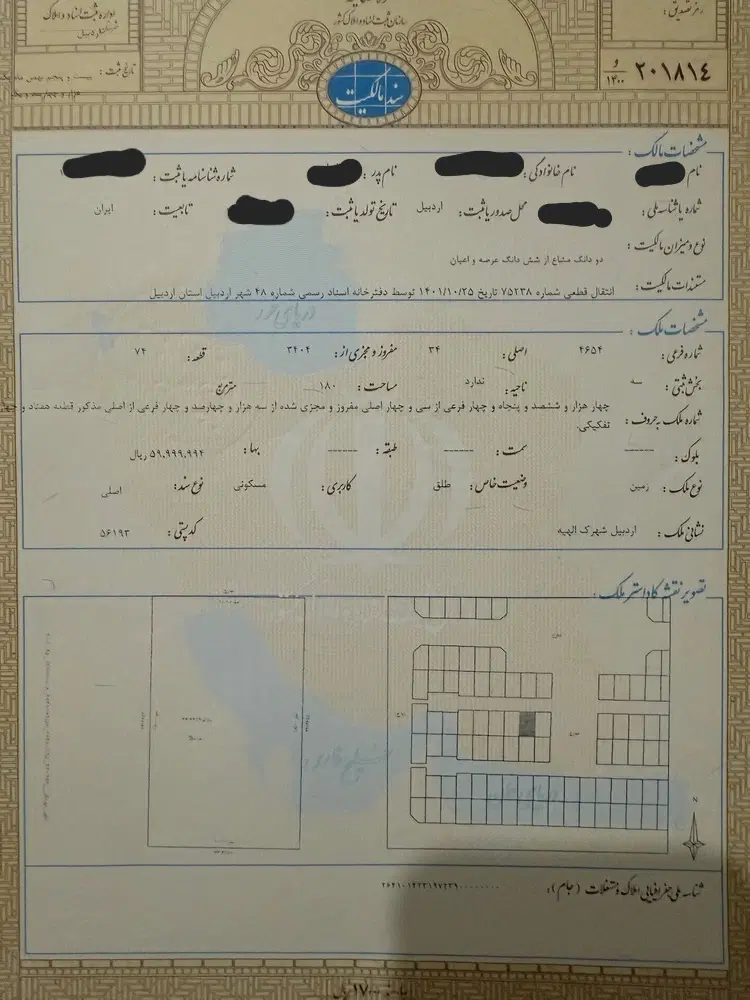 سازمان ثبت اسناد و املاک کشور
اداره ثبت اسناد و املاک
شهرستان اردبیل
رمز تصدیق :
تاریخ ثبت : بیست و پنجم بهمن ماه یک
هزار و چهارصد و یک
۲۰۱۸۱۴
و
۱۴۰۰
سند مالکیت
مشخصات مالک :
نام نام خانوادگی : نام پدر : شماره شناسنامه یا ثبت :
شماره یا شناسه ملی : محل صدور یا ثبت : اردبیل تاریخ تولد یا ثبت : تابعیت : ایران
نوع و میزان مالکیت : دو دانگ مشاع از شش دانگ عرصه و اعیان
مستندات مالکیت : انتقال قطعی شماره ۷۵۲۳۸ تاریخ ۱۴۰۱/۱۰/۲۵ توسط دفترخانه اسناد رسمی شماره ۴۸ شهر اردبیل استان اردبیل
مشخصات ملک :
دریای خزر
شماره فرعی : ۴۶۵۴ اصلی : ۳۴ مفروز و مجزی از : ۳۴۰۴ قطعه : ۷۴
بخش ثبتی : سه ناحیه : ندارد مساحت : ۱۸۰ مترمربع
شماره ملک به حروف : چهار هزار و ششصد و پنجاه و چهار فرعی از سی و چهار اصلی مفروز و مجزی شده از سه هزار و چهارصد و چهار فرعی از اصلی مذکور قطعه هفتاد و چهار
تفکیکی.
بلوک : ------ سمت : ------ طبقه : ------ بها : ۵۹,۹۹۹,۹۹۴ ریال
نوع ملک : زمین وضعیت خاص : طلق کاربری : مسکونی نوع سند : اصلی
نشانی ملک : اردبیل شهرک الهیه کدپستی : ۵۶۱۹۳
تصویر نقشه کاداستر ملک :
N
خلیج فارس
دریای عمان
شناسه ملی جغرافیایی املاک و مستغلات (جام) :